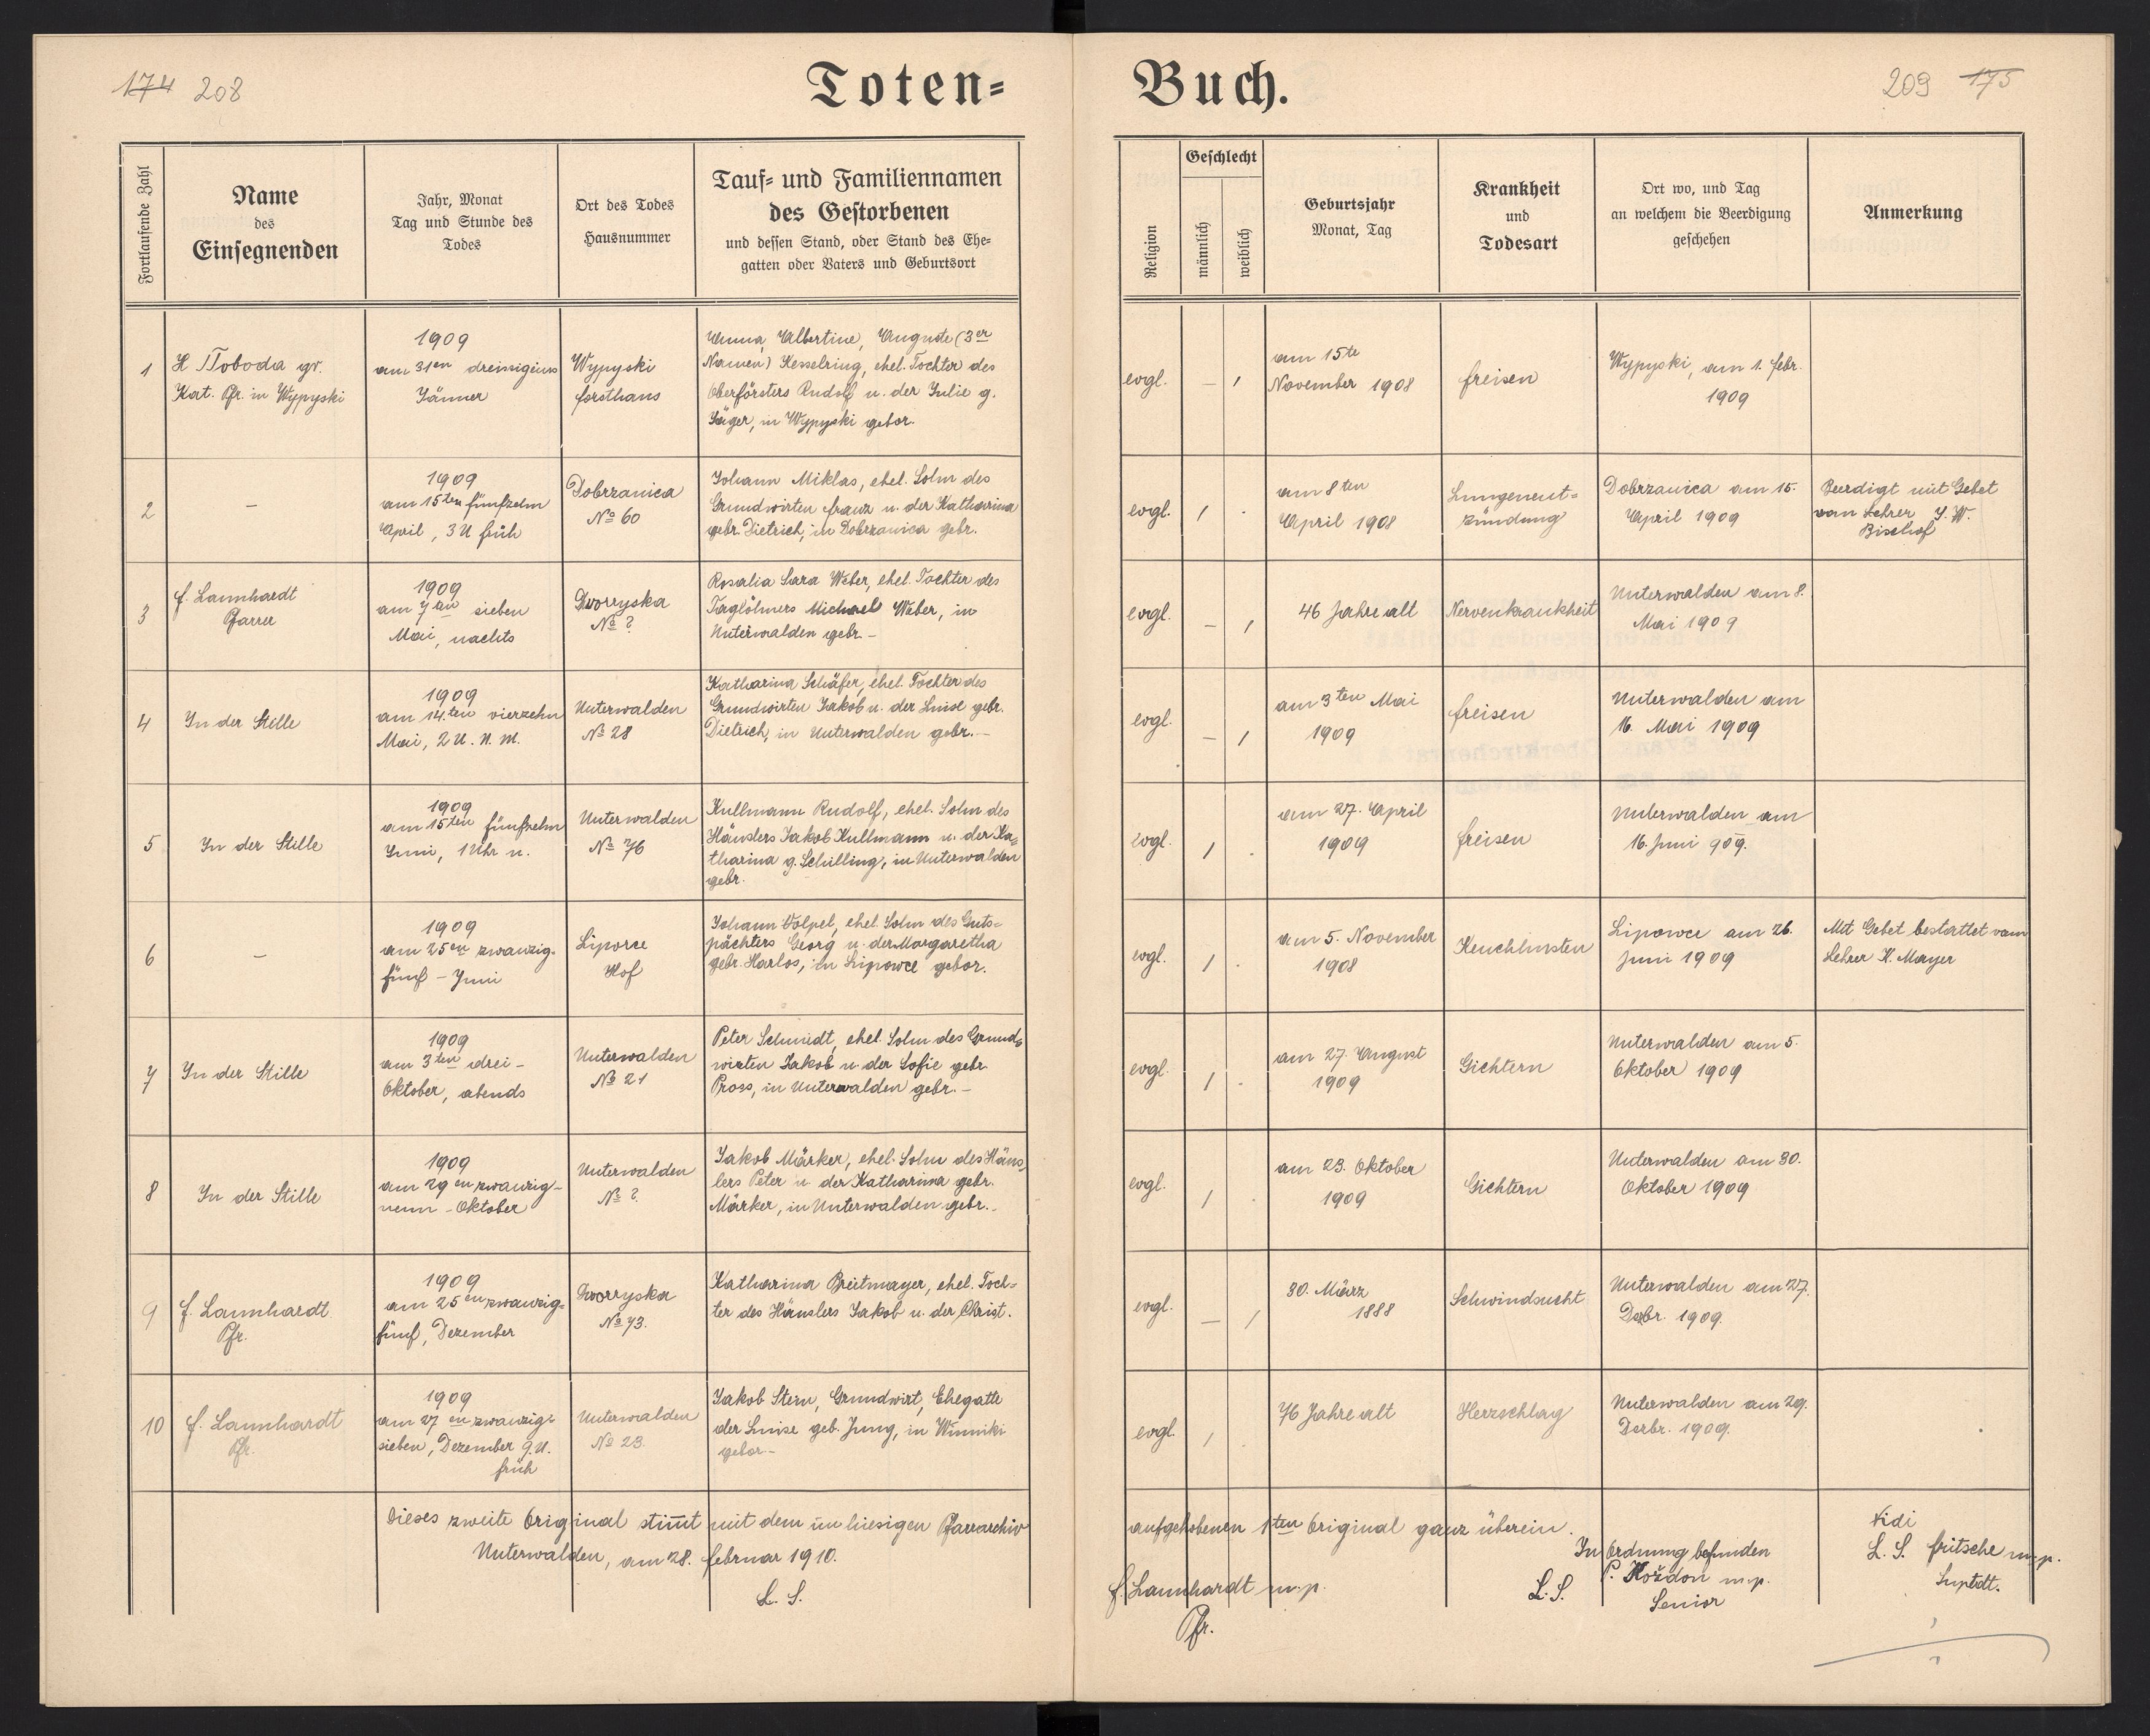 174 208
Toten=
Buch.
209 175
Fortlaufende Zahl
Name
des
Einsegnenden
Jahr, Monat
Tag und Stunde des
Todes
Ort des Todes
Hausnummer
Tauf= und Familiennamen
des Gestorbenen
und dessen Stand, oder Stand des Ehe=
gatten oder Vaters und Geburtsort
Religion
Geschlecht
männlich
weiblich
Geburtsjahr
Monat, Tag
Krankheit
und
Todesart
Ort wo, und Tag
an welchem die Beerdigung
geschehen
Anmerkung
1
gr.
Kat. Pfr. in Wypyski
1909
am 31en dreissigeins
Jänner
Wypyski
Forsthaus
Anna, Albertine, Auguste (3er
Namen) Kesselring, ehel. Tochter des
Oberförsters Rudolf u. der Julie g.
Jäger, in Wypyski gebor.
evgl.
– /
am 15te
November 1908
Freisen
Wypyski, am 1. Febr.
1909
2
–
1909
am 15ten fünfzehn
April, 3 U früh
Dobrzanica
No 60
Johann Miklas, ehel. Sohn des
Grundwirten Franz u. der Katharina
gebr. Dietrich, in Dobrzanica gebr.
evgl.
/ .
am 8ten
April 1908
Lungenent=
zündung
Dobrzanica am 15.
April 1909
Beerdigt mit Gebet
von Lehrer J. W.
Bischof
3
F. Lannhardt
Pfarrer
1909
am 7ten sieben
Mai, nachts
Dworzyska
No ?
Rosalia Sara Weber, ehel. Tochter des
Taglöhners Michael Weber, in
Unterwalden gebr. –
evgl.
– /
46 Jahre alt
Nervenkrankheit
Unterwalden am 8.
Mai 1909
4
In der Stille
1909
am 14.ten vierzehn
Mai, 2 U. N. M.
Unterwalden
No 28
Katharina Schäfer, ehel. Tochter des
Grundwirten Jakob u. der Luise gebr.
Dietrich, in Unterwalden gebr. –
evgl.
– /
am 3ten Mai
1909
Freisen
Unterwalden am
16. Mai 1909
5
In der Stille
1909
am 15ten fünfzehn
Juni, 1 Uhr n.
Unterwalden
No 76
Kullmann Rudolf, ehel. Sohn des
Häuslers Jakob Kullmann u. der Ka=
tharina g. Schilling, in Unterwalden
gebr.
evgl.
/ .
am 27. April
1909
Freisen
Unterwalden am
16. Juni 909.
6
–
1909
am 25en zwanzig-
fünf – Juni
Hof
Johann Wolpel, ehel. Sohn des Guts=
pächters Georg u. der Margaretha
gebr. Harlos, in Lipowce gebor.
evgl.
/ .
am 5. November
1908
Keuchhusten
Lipowce am 26.
Juni 1909
Mit Gebet bestattet vom
Lehrer K. Mayer
7
In der Stille
1909
am 3ten drei –
Oktober, abends
Unterwalden
No 21
Peter Schmidt, ehel. Sohn des Grund=
wirten Jakob u. der Sofie gebr.
Pross, in Unterwalden gebr. –
evgl.
/ .
am 27. August
1909
Gichtern
Unterwalden am 5.
Oktober 1909
8
In der Stille
1909
am 29en zwanzig-
neun – Oktober
Unterwalden
No ?
Jakob Märker, ehel. Sohn des Häus=
lers Peter u. der Katharina gebr.
Märker, in Unterwalden gebr. –
evgl.
/ .
am 23. Oktober
1909
Gichtern
Unterwalden am 30.
Oktober 1909
9
F. Lannhardt
Pfr.
1909
am 25en zwanzig=
fünf, Dezember
Dworzyska
No 73.
Katharina Breitmayer, ehel. Toch=
ter des Häuslers Jakob u. der Christ.
evgl.
– /
30. März
1888
Schwindsucht
Unterwalden am 27.
Dezbr. 1909.
10
F. Lannhardt
Pfr.
1909
am 27en zwanzig-
sieben, Dezember 9. U.
früh
Unterwalden
No 23.
Jakob Stein, Grundwirt, Ehegatte
der Luise geb. Jung, in Winniki
gebor –
evgl.
/ .
76 Jahre alt
Herzschlag
Unterwalden am 29.
Dezbr. 1909.
Dieses zweite Original stimt mit dem im hiesigen Pfarrarchiv
aufgehobenen 1ten Original ganz überein.
Unterwalden, am 28. Februar 1910.
L. S.
F. Lannhardt m.p.
Pfr.
In Ordnung befunden
L. S.
P. Kożdon m.p.
Senior
Vidi
L. S. Fritsche m.p.
Suptdt.